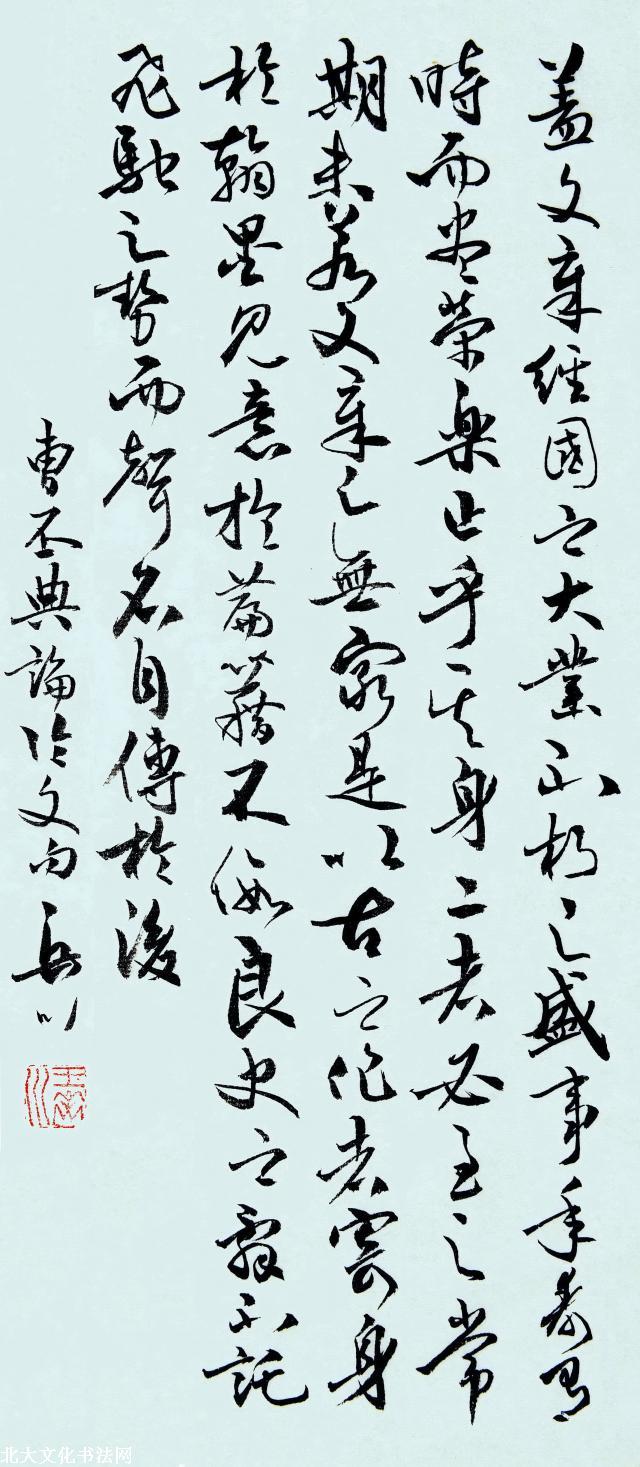 盖文章經國之大業不朽之盛事年壽有
時而尽荣樂止乎其身二者必至之常
期未若文章之無窮是以古之作者寄身
於翰墨見意於篇籍不假良史之辭不託
飛馳之势而聲名自傳於後
曹丕典論論文句 岳川
北大文化书法网